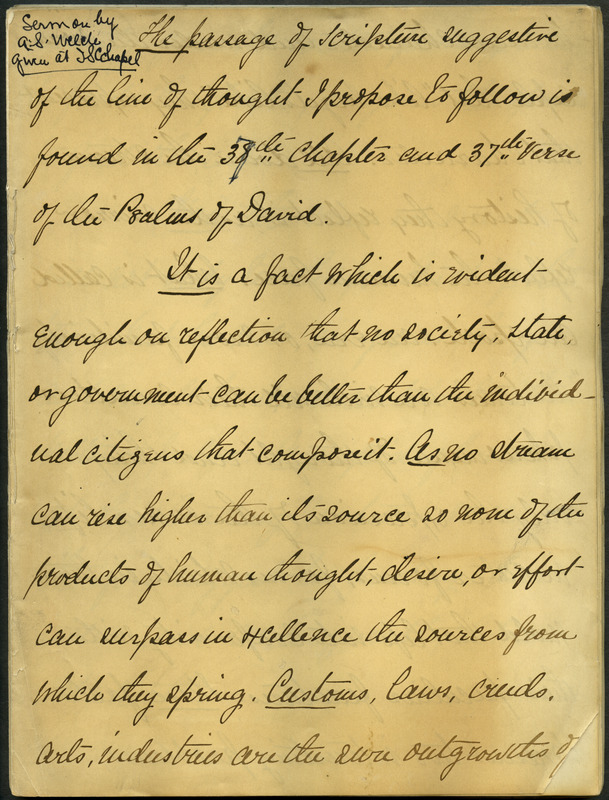 Sermon by
A.S. Welch
given at ISC Chapel
The passage of scripture suggestive
of the line of thought I propose to follow is
found in the 38th Chapter and 37th Verse
of the Psalms of David.
It is a fact which is evident
enough on reflection that no society, state,
or government can be better than the individ-
ual citizens that compose it. As no stream
can rise higher than its source so none of the
products of human thought, desire, or effort
can surpass in excellence the sources from
which they spring. Customs, laws, creeds,
arts, industries are the sure outgrowths of